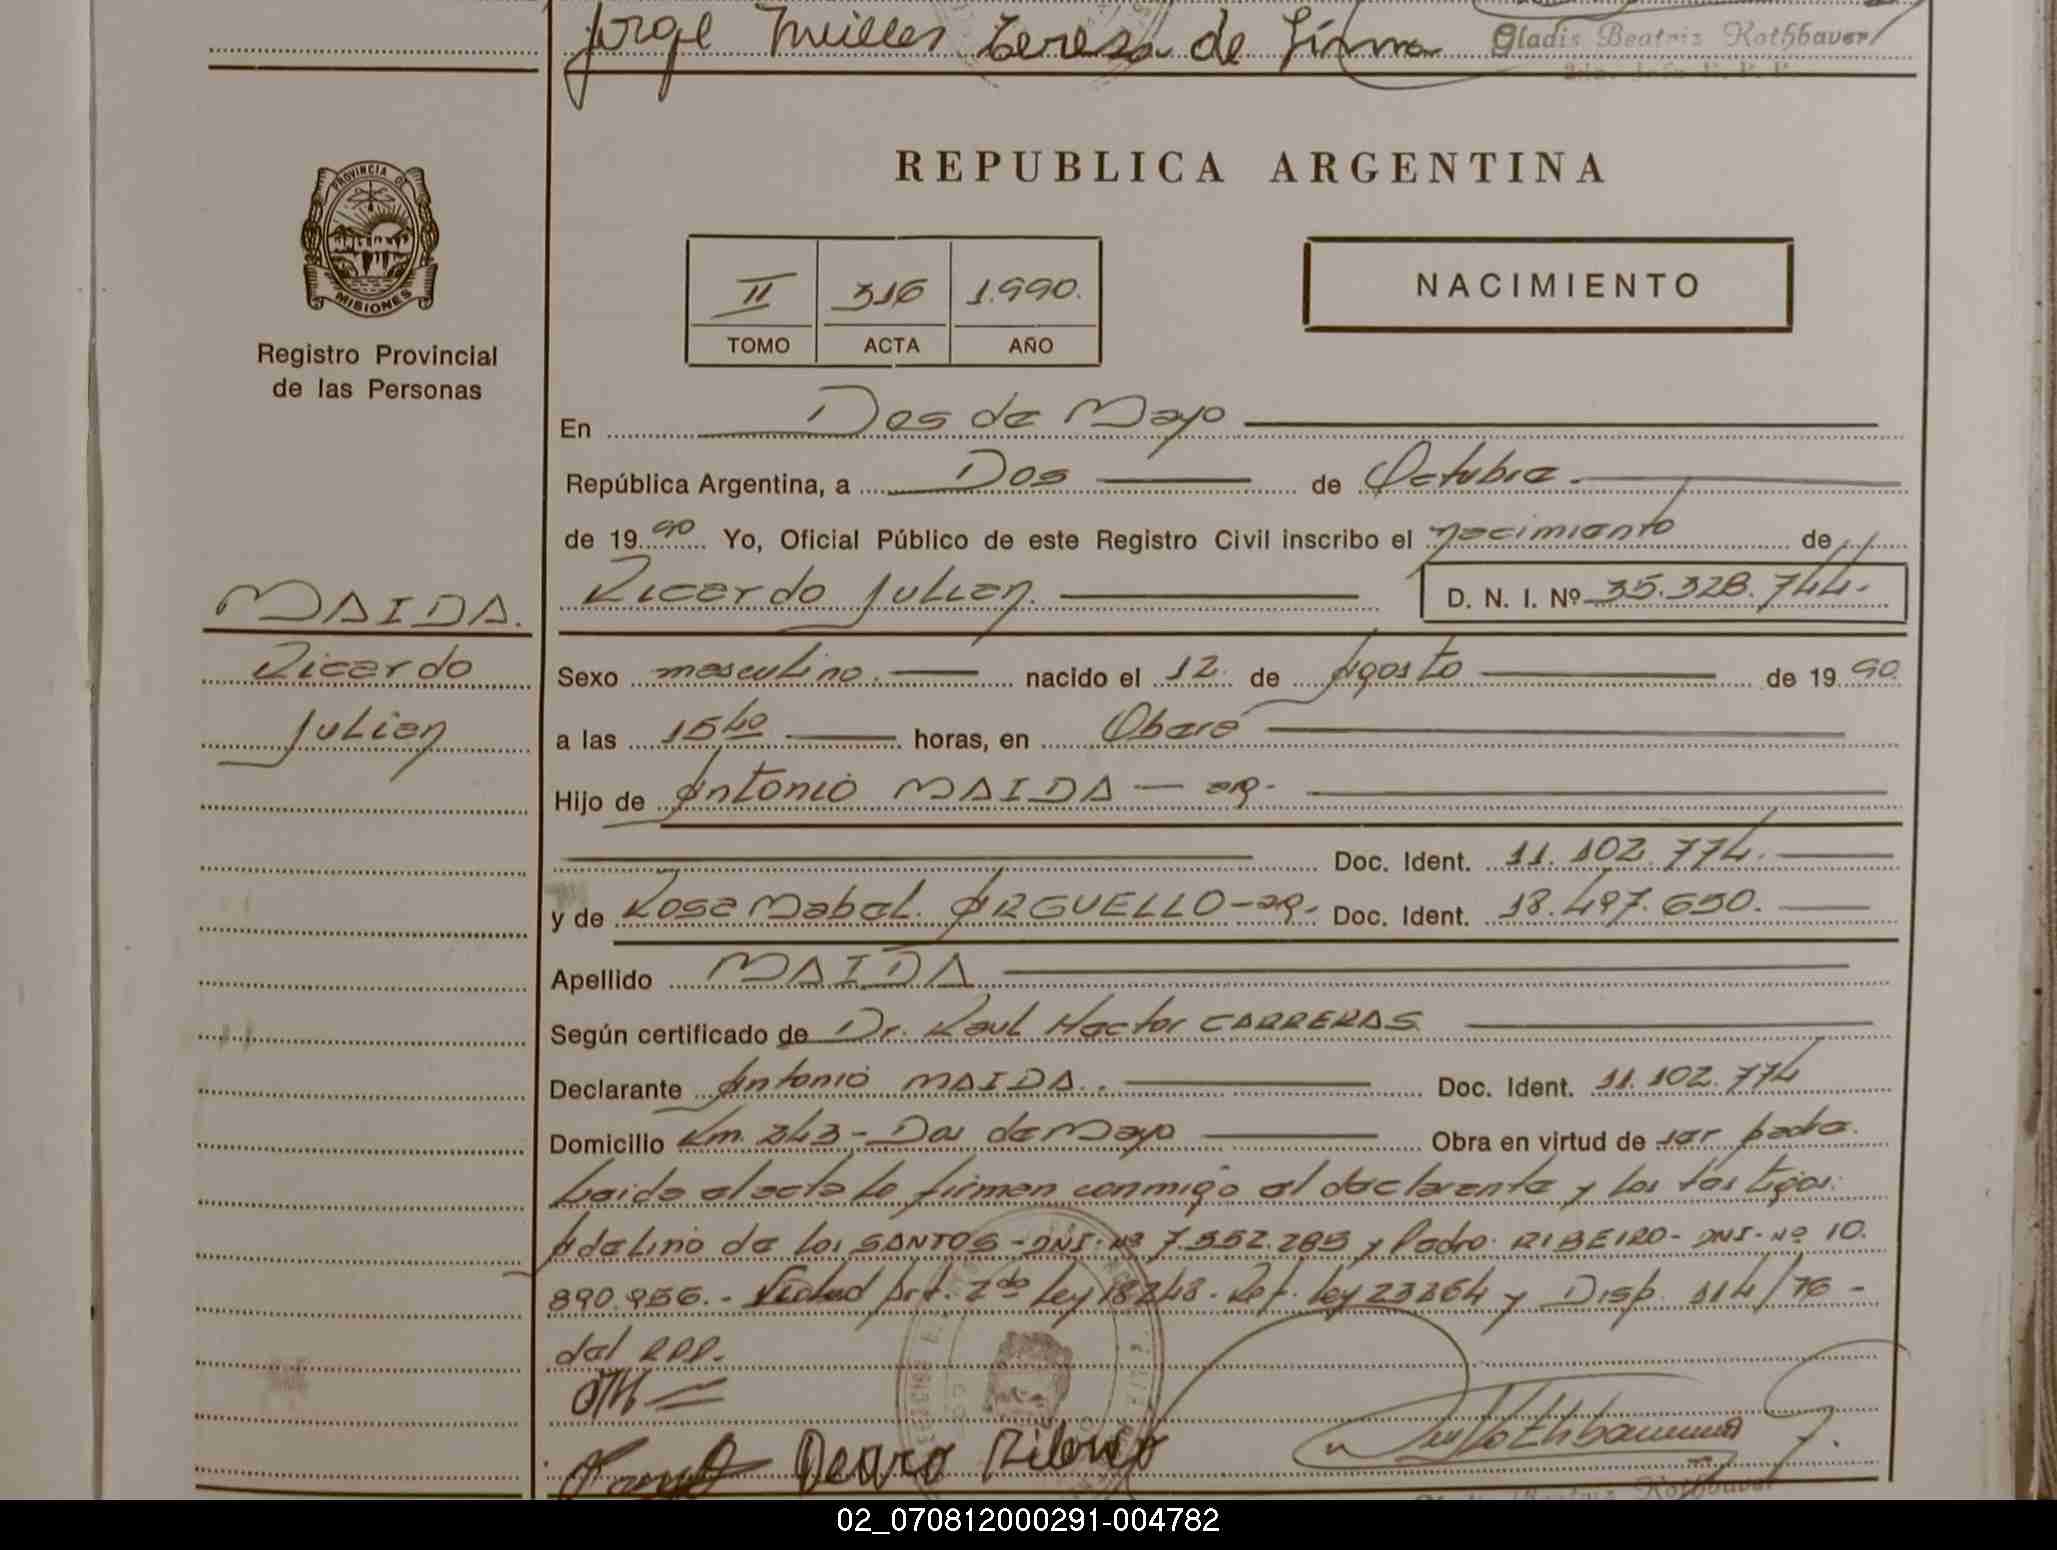 Jorge Muller Teresa de Lima Gladis Beatriz Rothbauer
REPUBLICA ARGENTINA
PROVINCIA DE
MISIONES
Registro Provincial
de las Personas
II 316 1.990.
TOMO ACTA AÑO
NACIMIENTO
En Dos de Mayo
República Argentina, a Dos de Octubre.
de 1990 Yo, Oficial Público de este Registro Civil inscribo el nacimiento de
Ricardo Julian. D. N. I. Nº 35.328.744.-
MAIDA.
Ricardo
Julian
Sexo masculino. nacido el 12. de Agosto de 1990.
a las 15 40 horas, en Oberá
Hijo de Antonio MAIDA — arg.
Doc. Ident. 11.102.774.
y de Rosa Mabel. ARGUELLO - arg. Doc. Ident. 18.497.650.
Apellido MAIDA
Según certificado de Dr. Raul Hector CARRERAS
Declarante Antonio MAIDA. Doc. Ident. 11.102.774
Domicilio Km. 243 - Dos de Mayo Obra en virtud de ser padre.
Leida el acta la firman conmigo el declarante y los testigos:
Adelino de los SANTOS - DNI. Nº 7.552.285 y Pedro RIBEIRO - DNI. Nº 10.
890.956. - Art. 2do Ley 18248. Ref. Ley 23264 y Disp. 114/76 -
del RPP.
Pedro Ribeiro Rothbauer
Gladis Beatriz Rothbauer
02_070812000291-004782